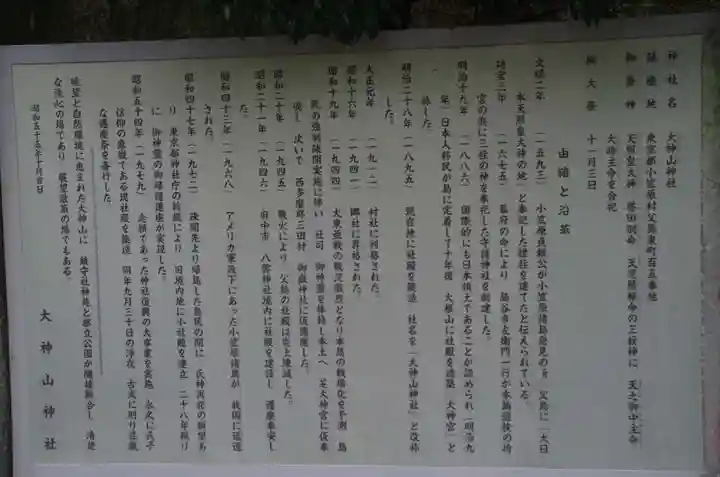 神社名　大神山神社
鎮座地　東京都小笠原村父島東町百五番地
御祭神　天照皇大神　誉田別命　天児屋根命の三柱神に　天之御中主命
大綿主命を合祀
例大祭　十一月三日
由緒と沿革
文禄二年（一五九三）　小笠原貞頼公が小笠原諸島発見の為　父島に「大日
本天照皇大神の地」と奉記した標柱を建てたと伝えられている。
延宝三年（一六七五）　幕府の命により　嶋谷市左衛門一行が本島巡検の折
宮の浜に三柱の神を奉祀した守護神社を創建した。
明治十九年（一八八六）　国際的にも日本領土であることが認められ（明治九
年）日本人移民が島に定着して十年後　大根山に社殿を造築「大神宮」と
称した。
明治二十八年（一八九五）　現在地に社殿を築造　社名を「大神山神社」と改称
した。
大正元年（一九一二）　村社に列格された。
昭和十六年（一九四一）　郷社に昇格された。
昭和十九年（一九四四）　大東亜戦の戦況激烈となり本島の戦場化を予測　島
民の強制疎開実施に伴い　社司　御神霊を捧持し本土へ　芝大神宮に仮奉
遷し　次いで　西多摩郡三田村　御嶽神社に仮遷座した。
昭和二十年（一九四五）　戦火により　父島の社殿は炎上壊滅した。
昭和二十一年（一九四六）　府中市　八雲神社境内に社殿を建設し　遷座奉安し
ていた。
昭和四十三年（一九六八）　アメリカ軍政下にあった小笠原諸島が　我国に返還
された。
昭和四十七年（一九七二）　疎開先より帰島した島民の間に　氏神再建の願望あ
り　東京都神社庁の助成により　旧境内地に小社殿を建立　二十八年振り
に　御神霊の御帰島遷座が実現した。
昭和五十四年（一九七九）　念願であった神社復興の大事業を実施　永久に氏子
信仰の象徴である現社殿を築造　同年九月三十日の浄夜　古式に則り荘厳
な遷座祭を斎行した。
眺望と自然環境に恵まれた大神山に　鎮守社神苑と都立公園が隣接融合し　清楚
な浄心の場であり　展望散策の場でもある。
昭和五十五年十月吉日
大神山神社